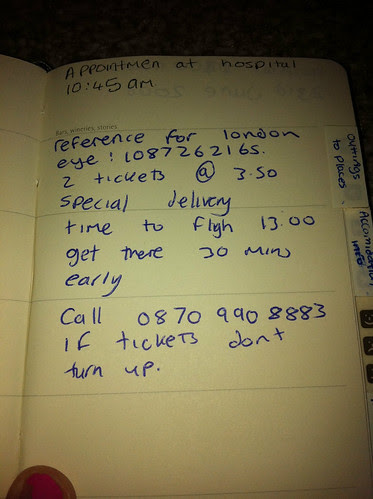 Appointmen at hospital
10:45 am
Bars, wineries, stories
reference for london
eye: 1087262165.
2 tickets @ 3.50
special delivery
time to fligh 13.00
get there 30 mins
early
Call 0870 990 8883
if tickets dont
turn up.
Outtings
to places
Accomidation
info